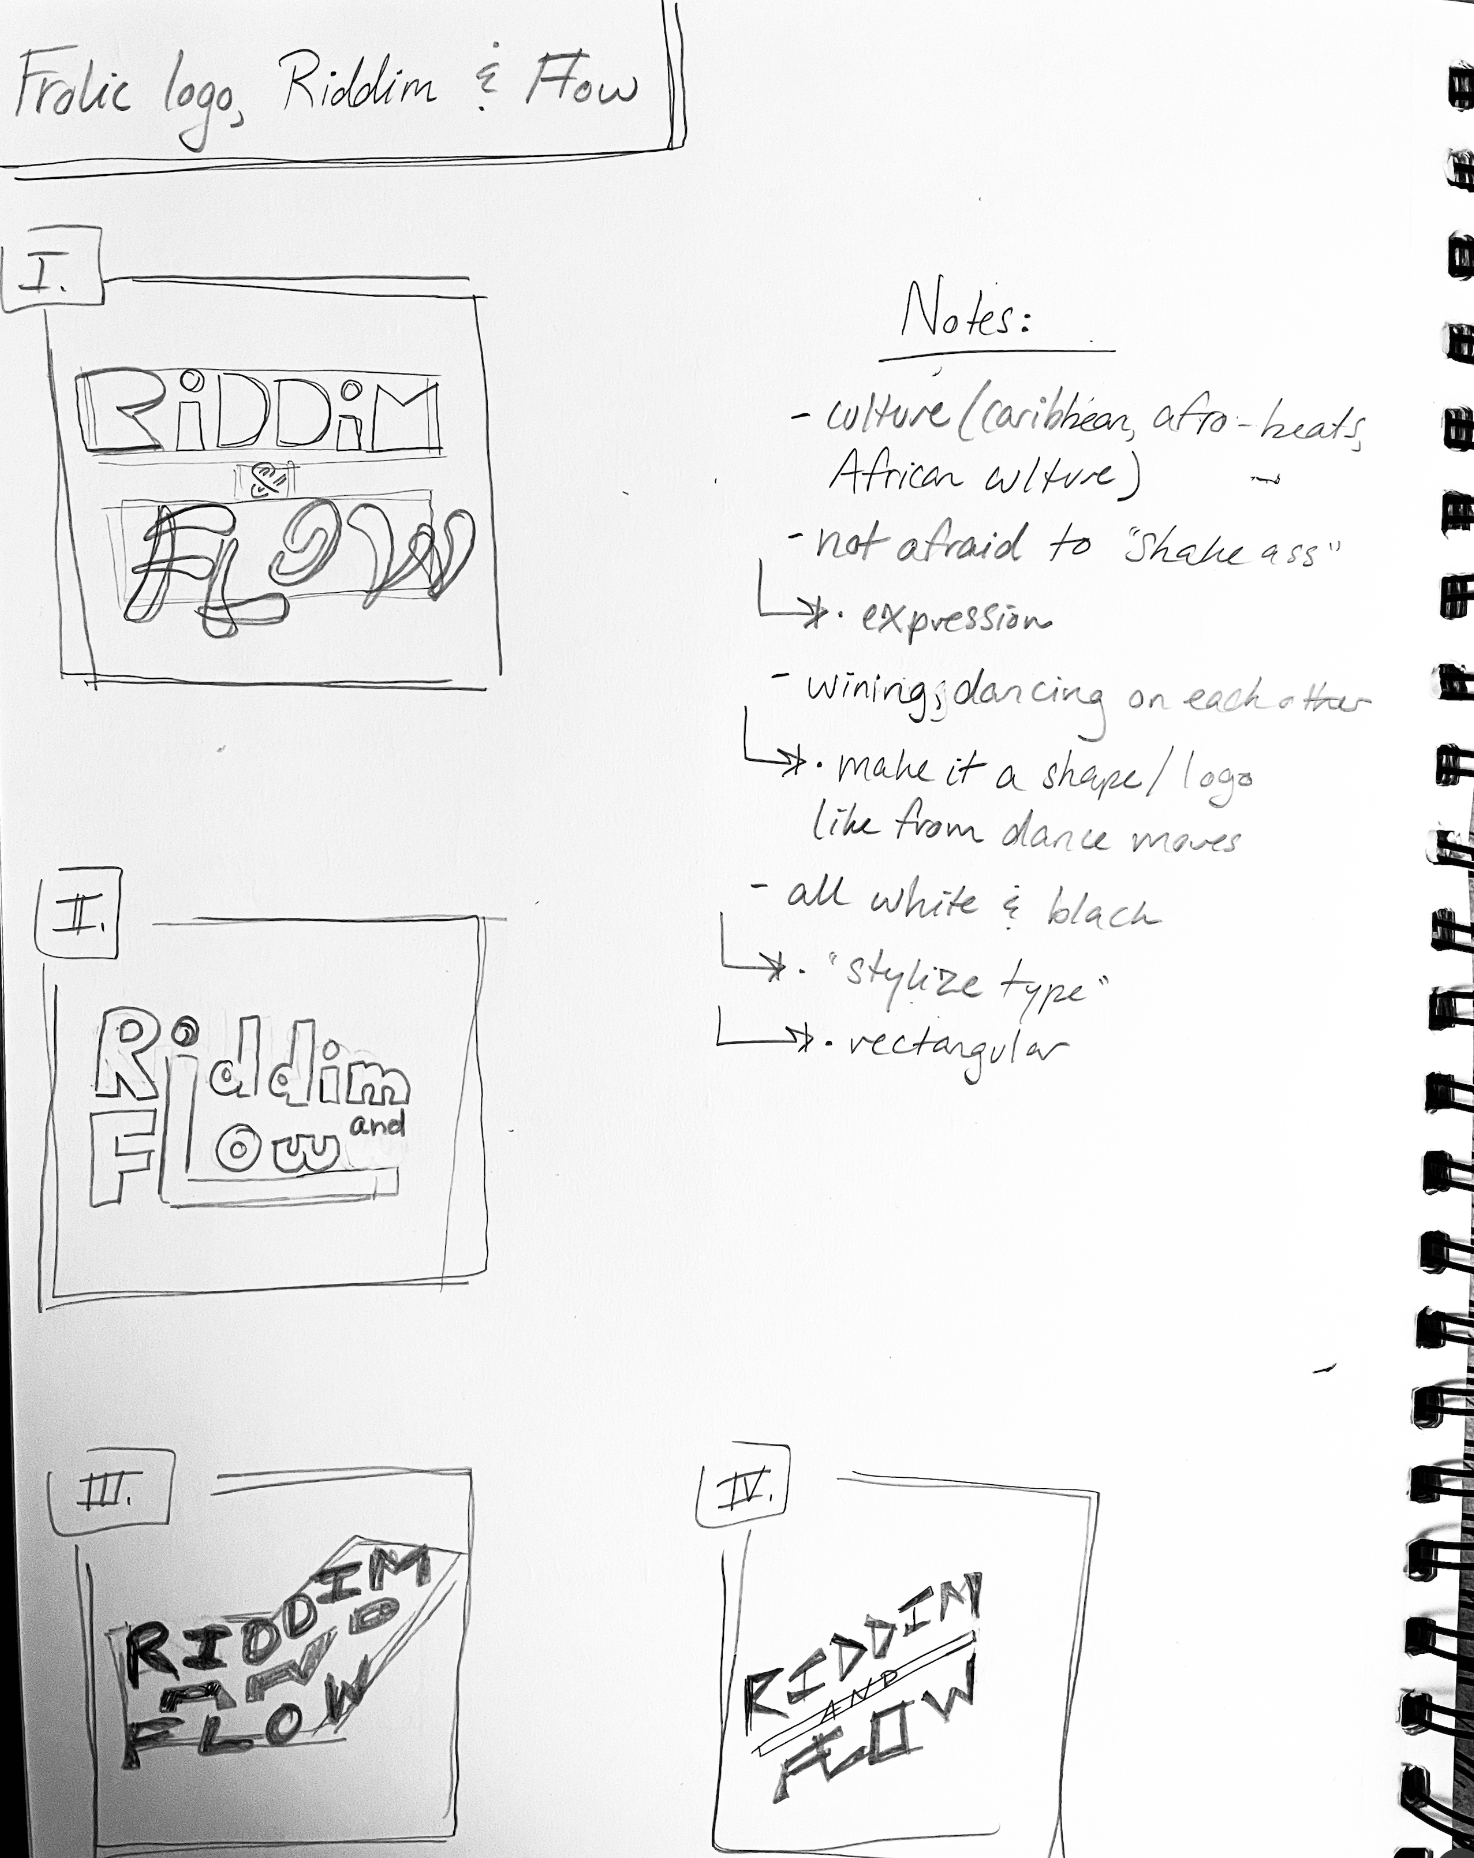 Frolic logo, Riddim & Flow
I.
RiDDiM
&
FLOW
Notes:
- culture (Caribbean, afro-beats,
African culture)
- not afraid to "shake ass"
· expression
- wining, dancing on each other
· make it a shape / logo
like from dance moves
- all white & black
· "stylize type"
· rectangular
II.
Riddim
and
Flow
III.
RIDDIM
AND
FLOW
IV.
RIDDIM
AND
FLOW